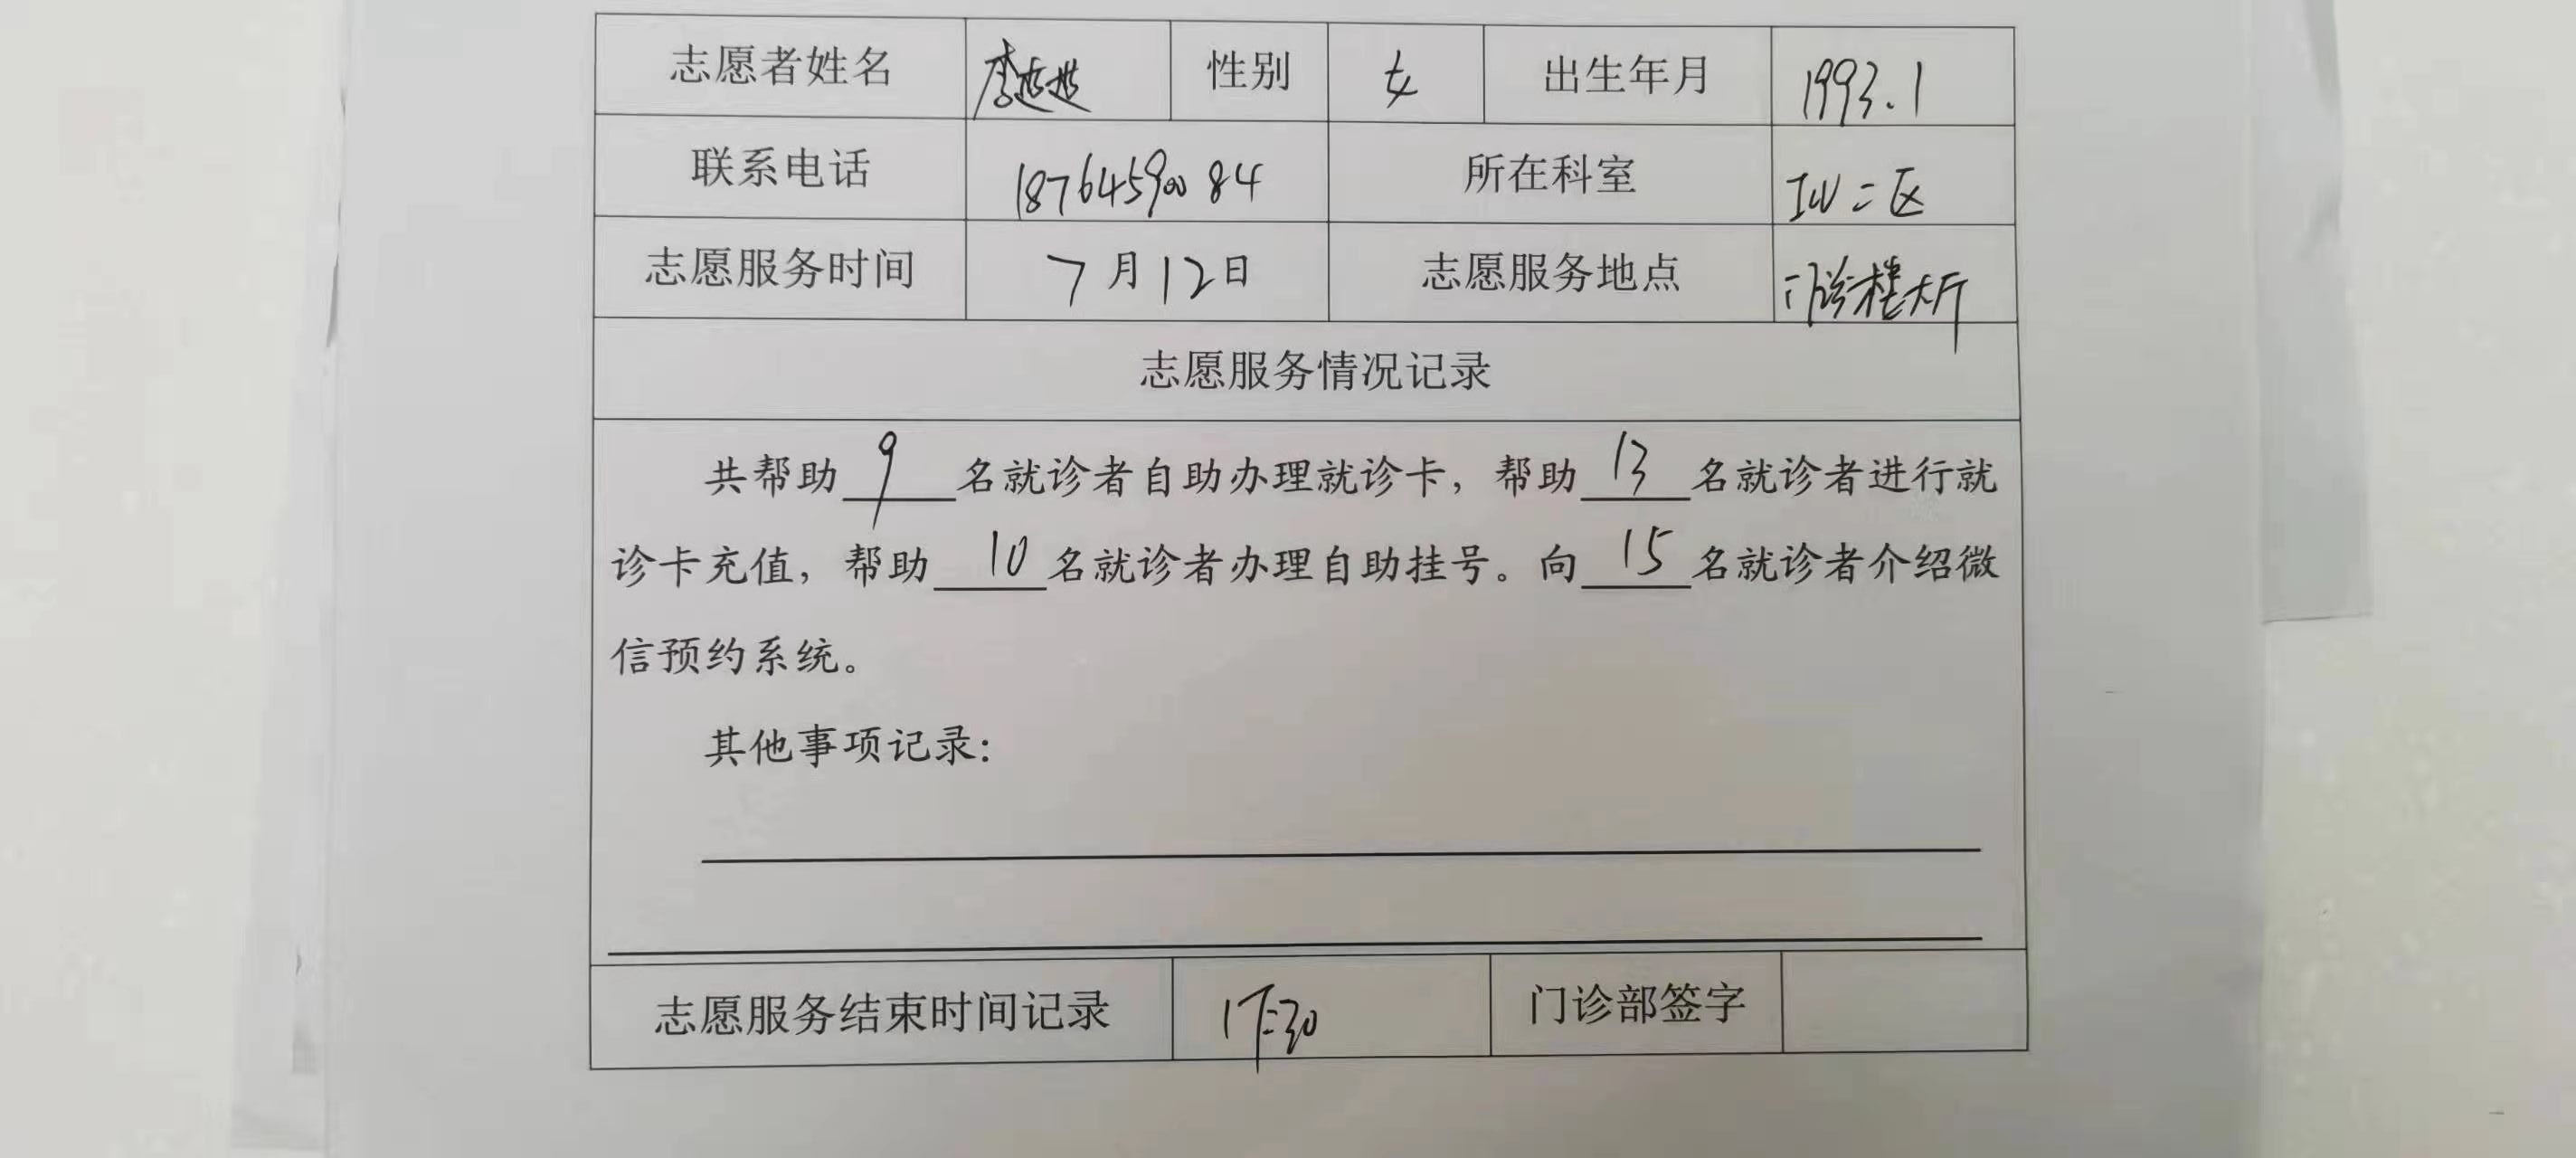 志愿者姓名 李 性别 女 出生年月 1993.1
联系电话 18764590084 所在科室 ICU二区
志愿服务时间 7月12日 志愿服务地点 门诊楼大厅
志愿服务情况记录
共帮助9名就诊者自助办理就诊卡，帮助13名就诊者进行就
诊卡充值，帮助10名就诊者办理自助挂号。向15名就诊者介绍微
信预约系统。
其他事项记录：
志愿服务结束时间记录 门诊部签字